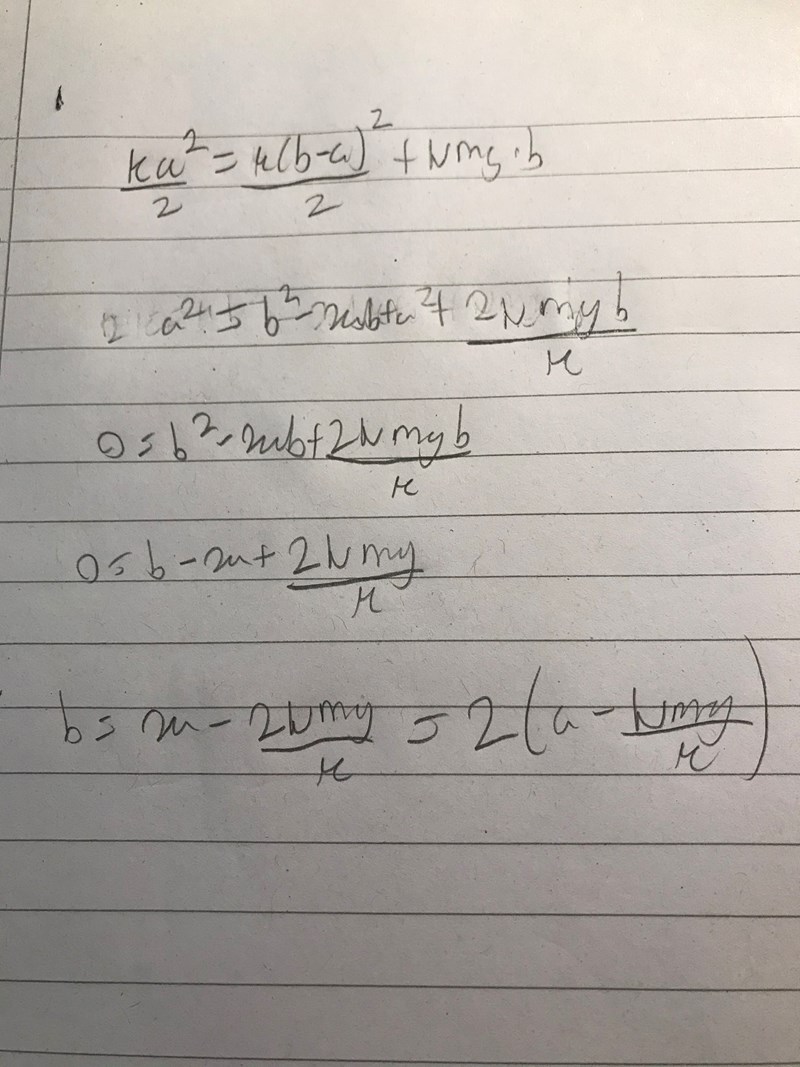 ka²/2 = k(b-a)²/2 + Nmg·b
a² = b² - 2ab + a² + 2Nmgb/k
0 = b² - 2ab + 2Nmgb/k
0 = b - 2a + 2Nmg/k
b = 2a - 2Nmg/k = 2(a - Nmg/k)